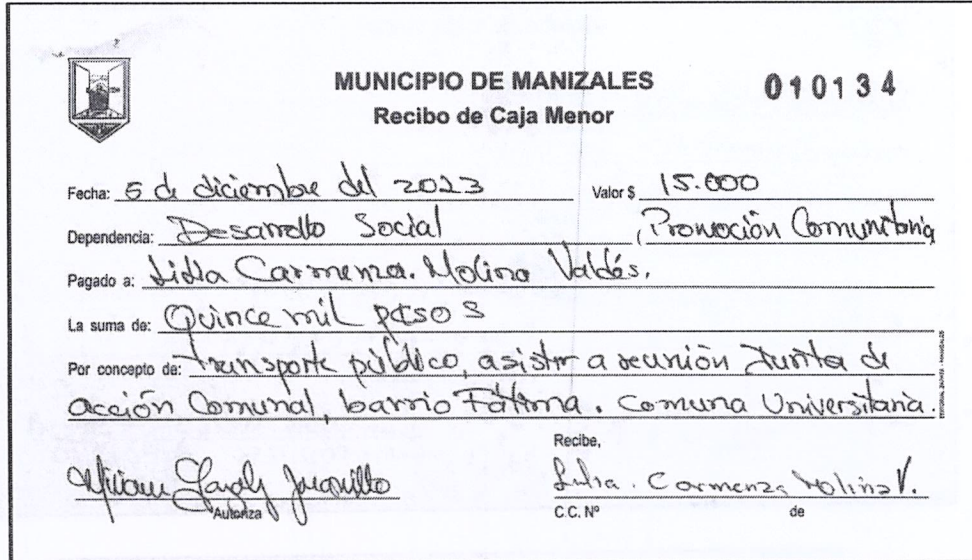 MUNICIPIO DE MANIZALES 010134
Recibo de Caja Menor
Fecha: 5 de diciembre del 2023 Valor $ 15.000
Dependencia: Desarrollo Social, Promoción Comunitaria
Pagado a: Lidia Carmenza. Molina Valdés.
La suma de: Quince mil pesos
Por concepto de: transporte público, asistir a reunión Junta de
acción Comunal, barrio Fátima. Comuna Universitaria.
Recibe,
Carmenza Molina V.
Autoriza C.C. Nº de